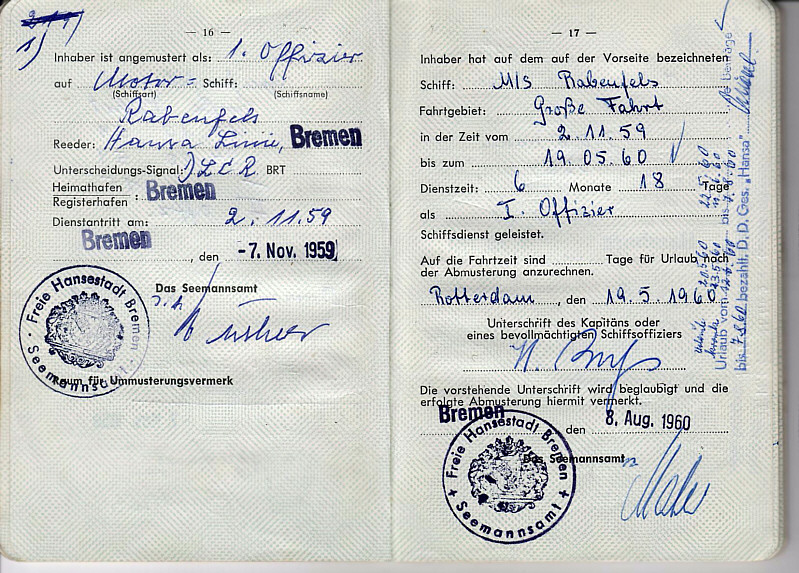 — 16 —
1)
Inhaber ist angemustert als: 1. Offizier
auf Motor = Schiff:
(Schiffsart) (Schiffsname)
Rabenfels
Reeder: Hansa Linie, Bremen
Unterscheidungs-Signal: DLCR BRT
Heimathafen
Registerhafen : Bremen
Dienstantritt am: 2.11.59
Bremen, den -7. Nov. 1959
Das Seemannsamt
Freie Hansestadt Bremen
Seemannsamt
Raum für Ummusterungsvermerk
— 17 —
Inhaber hat auf dem auf der Vorseite bezeichneten
Schiff: M/S Rabenfels
Fahrtgebiet: Große Fahrt
in der Zeit vom 2.11.59
bis zum 19.05.60
Dienstzeit: 6 Monate 18 Tage
als I. Offizier
Schiffsdienst geleistet.
Auf die Fahrtzeit sind Tage für Urlaub nach
der Abmusterung anzurechnen.
Rotterdam, den 19.5.1960
Unterschrift des Kapitäns oder
eines bevollmächtigten Schiffsoffiziers
Die vorstehende Unterschrift wird beglaubigt und die
erfolgte Abmusterung hiermit vermerkt.
Bremen den 8. Aug. 1960
Das Seemannsamt
Freie Hansestadt Bremen
Seemannsamt
Urlaub vom bis
bis 7.8.60 bezahlt. D. D. Ges. „Hansa"